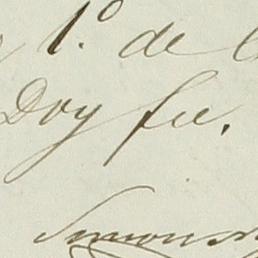 1.º de
Doy fee.